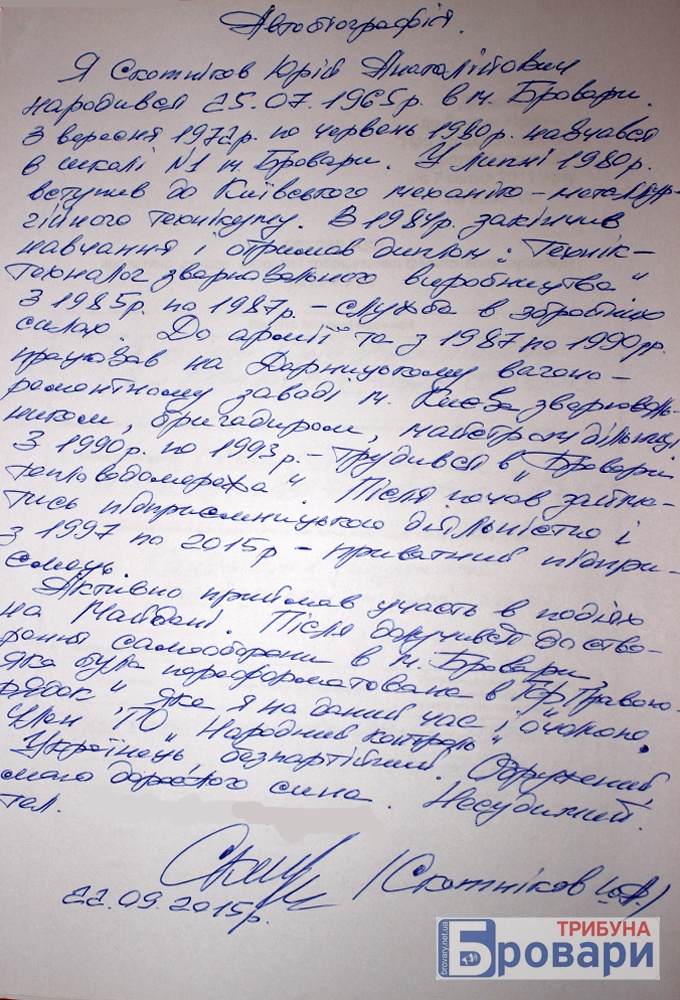 Автобіографія.
Я Скотніков Юрій Анатолійович
народився 25.07.1965р. в м. Бровари.
З вересня 1972р. по червень 1980р. навчався
в школі №1 м. Бровари. У липні 1980р.
вступив до Київського механіко-металур-
гійного технікуму. В 1984р. закінчив
навчання і отримав диплом: Технік-
технолог зварювального виробництва"
З 1985р. по 1987р. - служба в збройних
силах. До армії та з 1987 по 1990рр.
працював на Дарницькому вагоно-
ремонтному заводі м. Києва зварюваль-
ником, бригадиром, майстром дільниці
З 1990р. по 1993р. - трудився в „Бровари
тепловодомережа". Після почав займа-
тись підприємницькою діяльністю і
з 1997 по 2015р - приватний підпри-
ємець
Активно приймав участь в подіях
на Майдані. Після долучився до ство-
рення самооборони в м. Бровари,
яка була переформатована в ГФ „Правопо-
рядок" яке я на даний час і очолюю.
Член ГО „Народний контроль"
Українець, безпартійний. Одружений,
маю дорослого сина. Несудимий.
тел.
/Скотніков Ю.А./
22.09.2015р.
brovary.net.ua
ТРИБУНА
Бровари